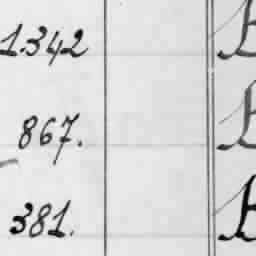 1.342
867.
381.